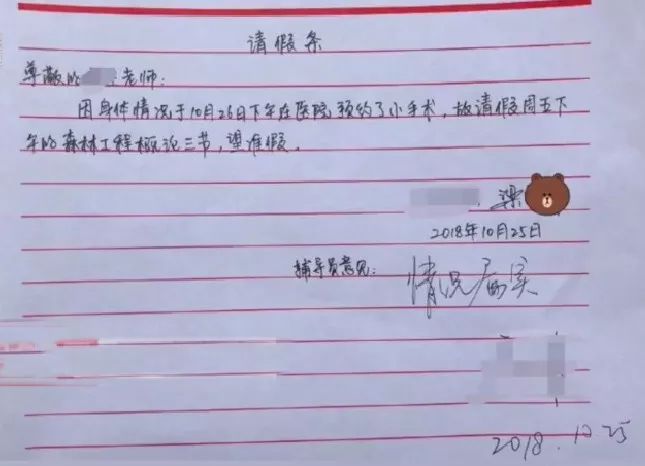 请假条
尊敬的 老师:
因身体情况于10月26日下午在医院预约了小手术,故请假周五下
午的森林工程概论三节,望准假。
梁
2018年10月25日
辅导员意见: 情况属实
2018.10.25